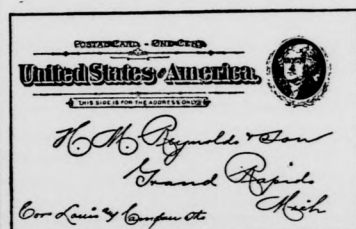 POSTAL CARD - ONE CENT.
United States of America.
THIS SIDE IS FOR THE ADDRESS ONLY
H. M. Reynolds & Son
Grand Rapids
Mich
Cor Louis & Campau Sts